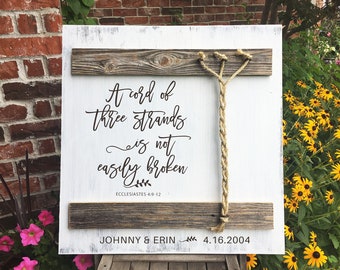 A cord of
three strands
is not
easily broken
ECCLESIASTES 4:9-12
JOHNNY & ERIN 4.16.2004